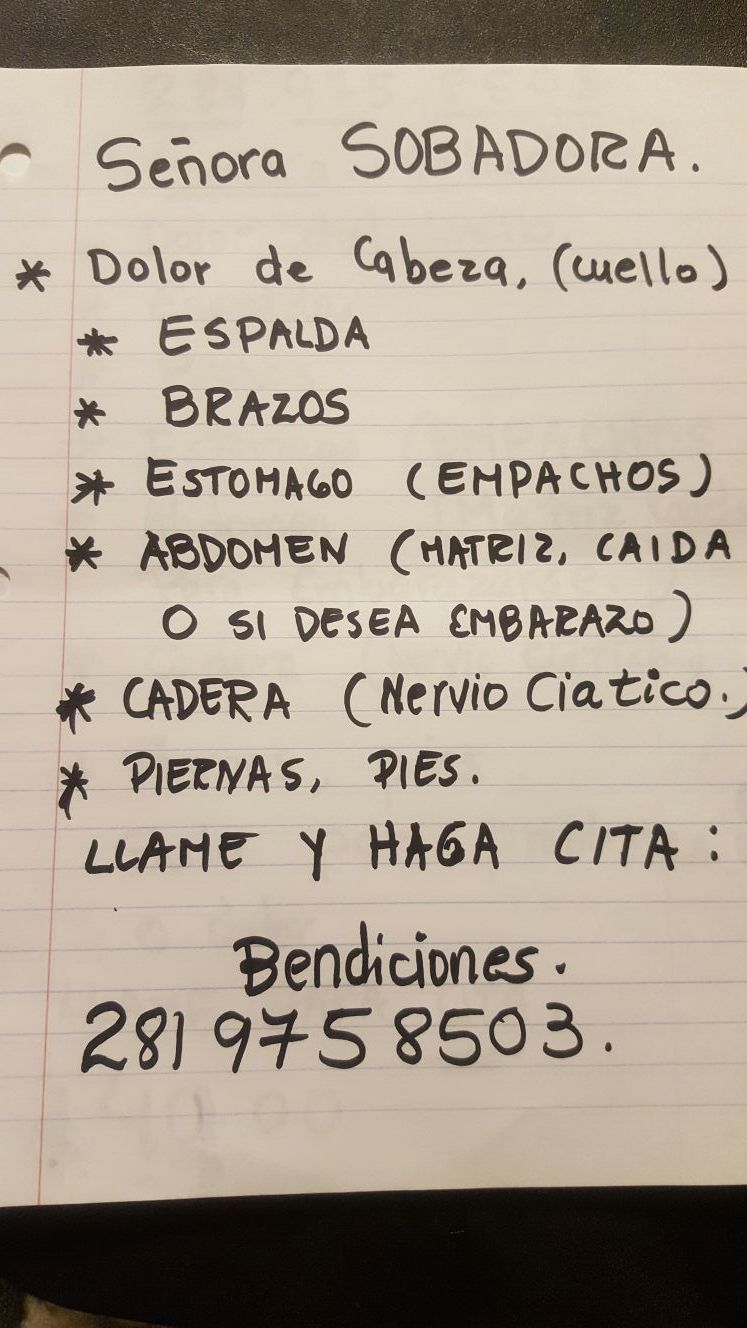 Señora SOBADORA.
* Dolor de Cabeza, (cuello)
* ESPALDA
* BRAZOS
* ESTOMAGO (EMPACHOS)
* ABDOMEN (MATRIZ, CAIDA
O SI DESEA EMBARAZO)
* CADERA (Nervio Ciatico.)
* PIERNAS, PIES.
LLAME Y HAGA CITA:
Bendiciones.
281 975 8503.